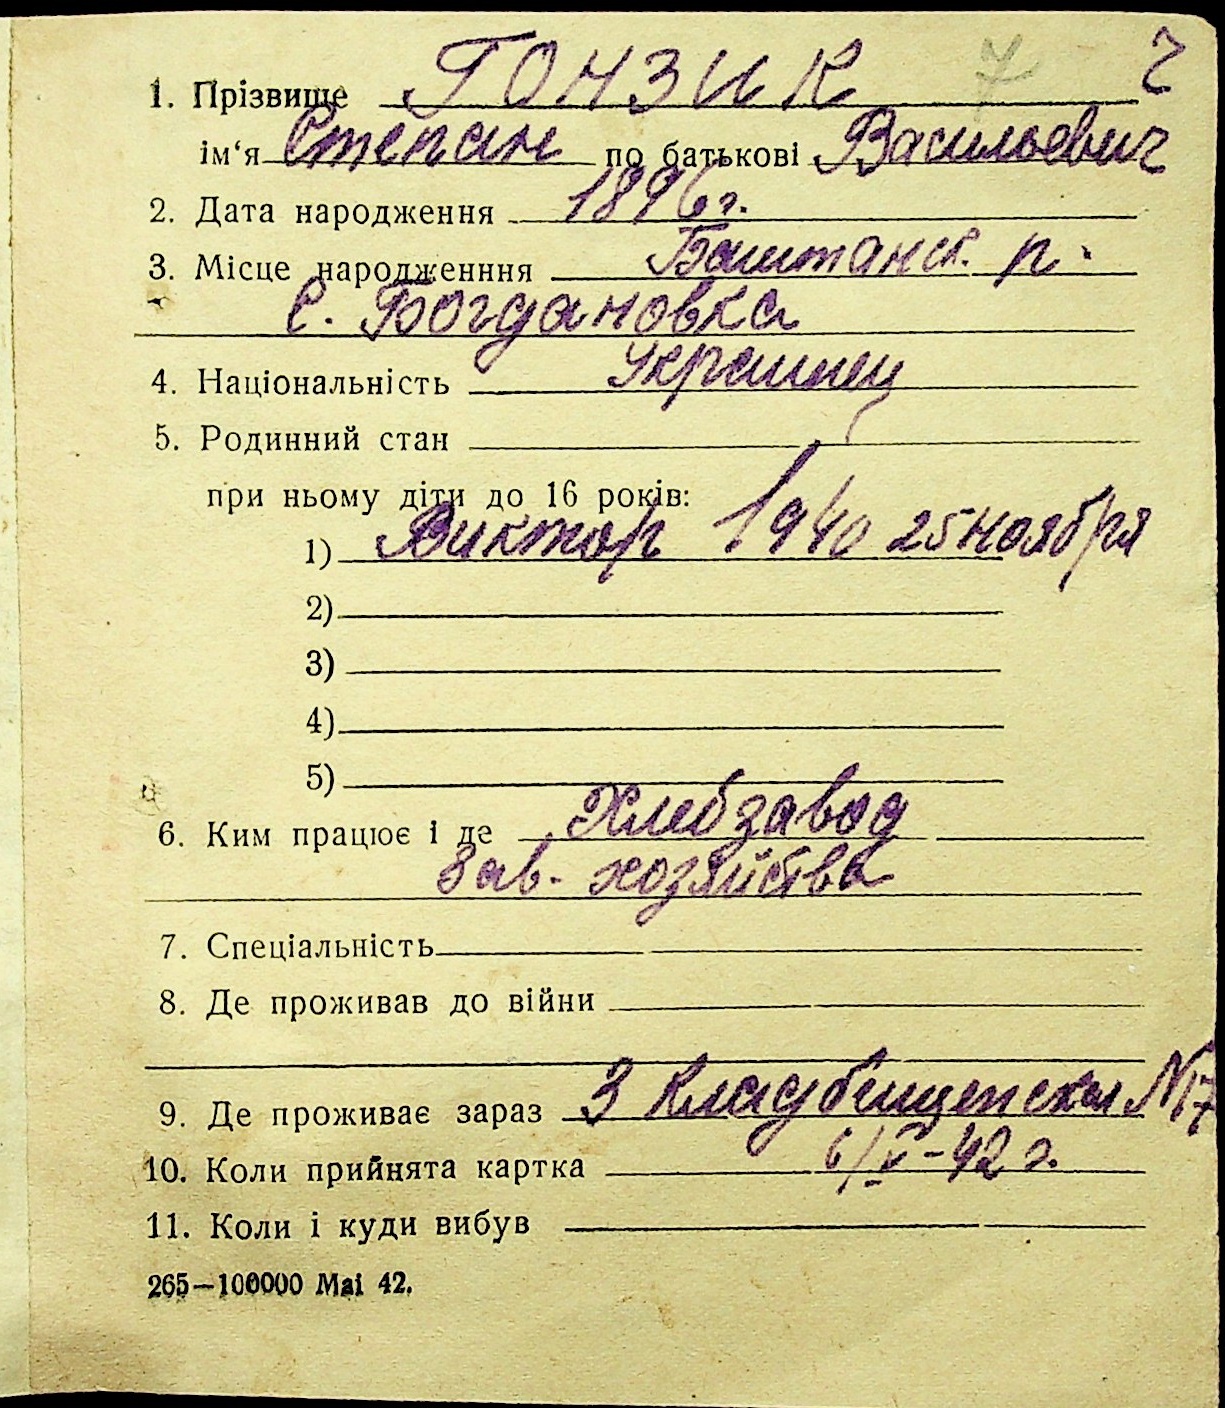 7 ч
1. Прізвище ГОНЗИК
ім'я Степан по батькові Васильевич
2. Дата народження 1896 г.
3. Місце народженння Баштанск. р.
с. Богдановка
4. Національність Украинец
5. Родинний стан
при ньому діти до 16 років:
1) Виктор 1940 25 ноября
2)
3)
4)
5)
6. Ким працює і де Хлебзавод
Зав. хозяйства
7. Спеціальність
8. Де проживав до війни
9. Де проживає зараз 3 Кладбищенская N 17
10. Коли прийнята картка 6/V-42 г.
11. Коли і куди вибув
265—100000 Mai 42.